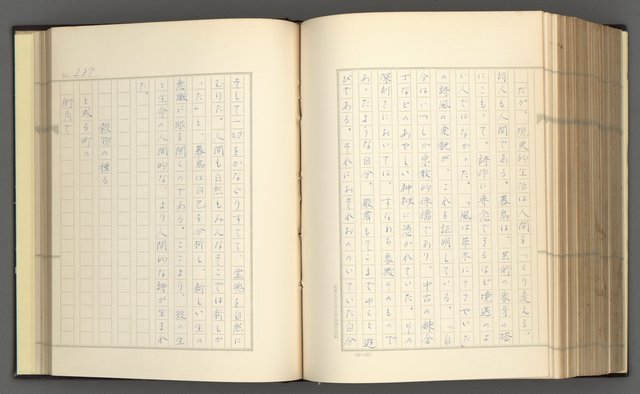 だが、現実的生活は人間をつくり変える。
詩人も人間である。暮鳥は、芸術の象牙の塔
にこもって、詩作に専念できるほど境遇のよ
い人ではなかった。「風は草木にささやいた」
の詩風の変貌が、これを証明している。「自
分はいつしか宗教的侏儒であり、中古の錬金
士などのあやしい神秘に憑かれていた。その
深刻さにおいては、すなわち象徴そのもので
あったような自分。厳粛もそこまでゆくと遊
びである。それにおそれおののいていた自分
No. 237
そして一切をかなぐりすてて、霊魂を自然に
もりた。人間も自然もみんなそこでは新しか
った」と、暮鳥は自己を分析し、新しい生の
意識に眼を開くのである。ここより、彼の生
と生命の人間的な、より人間的な詩が生まれ
た。
穀物の種子
と或る町の
街角で